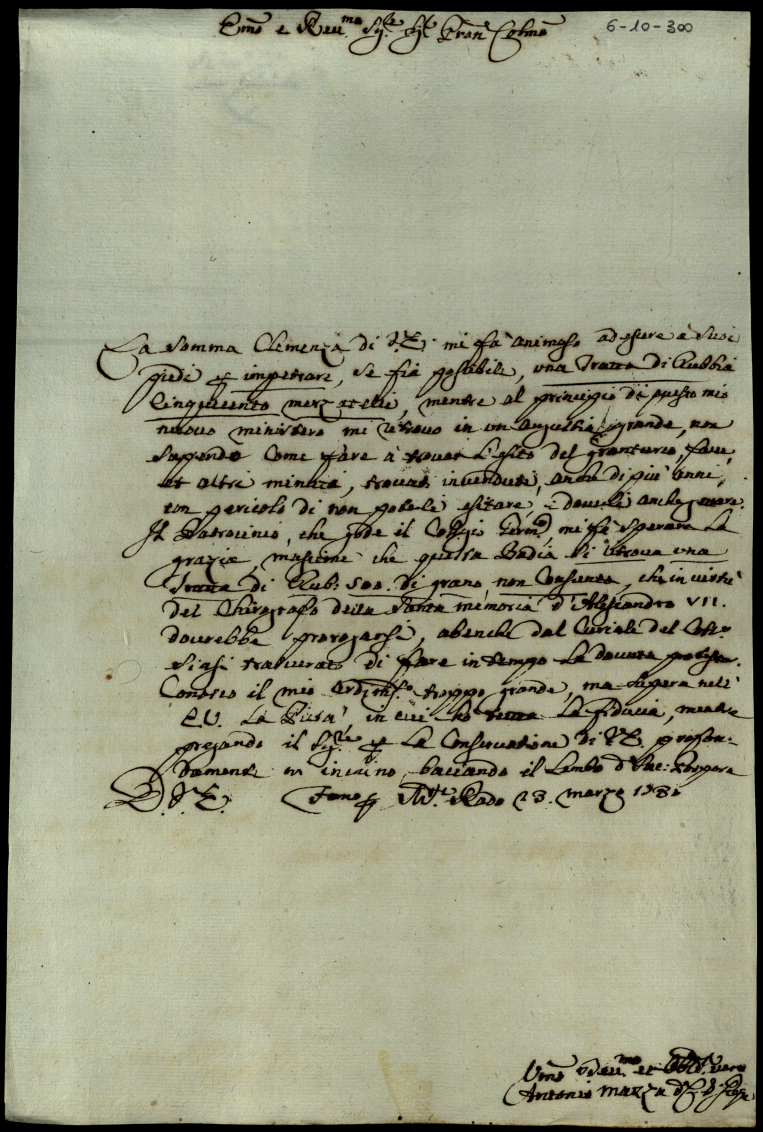 Emo e Reu.mo Sig.re Sig.r Pron Colmo
6-10-300
La somma Clemenza di V.E. mi fà animoso ad esere à suoi
piedi p impetrare, se fia possibile, una Tratta di Rubbia
Cinquecento, mentre al principio di questo mio
nuouo ministero mi ritrouo in un angustia grande, non
sapendo come fare à trouar l'esito del granturco, faue,
et altri minuti, trouati inuenduti, anche di più anni,
con pericolo di non poterli esitare, e douerli anche
Il Patrocinio, che gode il Collegio Germ.co, mi fà sperare la
grazia, massime che questa Badia si ritroua una
Tratta di Rub: 500. di grano, non Consunta, che in uirtù
del Chirografo della Santa memoria d'Alessandro VII.
dourebbe prorogarsi, abenche dal Curiale del
siasi trascurato di fare in tempo la douuta
Conosco il mio ardim.to troppo grande, ma supera nell'
E.V. la Pietà, in cui hò tutta la fiducia, mentre
pregando il Sig.re p la Conseruatione di V.E. profon-
damente m'inchino, baciando il Lembo d. Sac: Porpora
D. V.E. Fano p 23. marzo
Umo et vero
Antonio Mazza